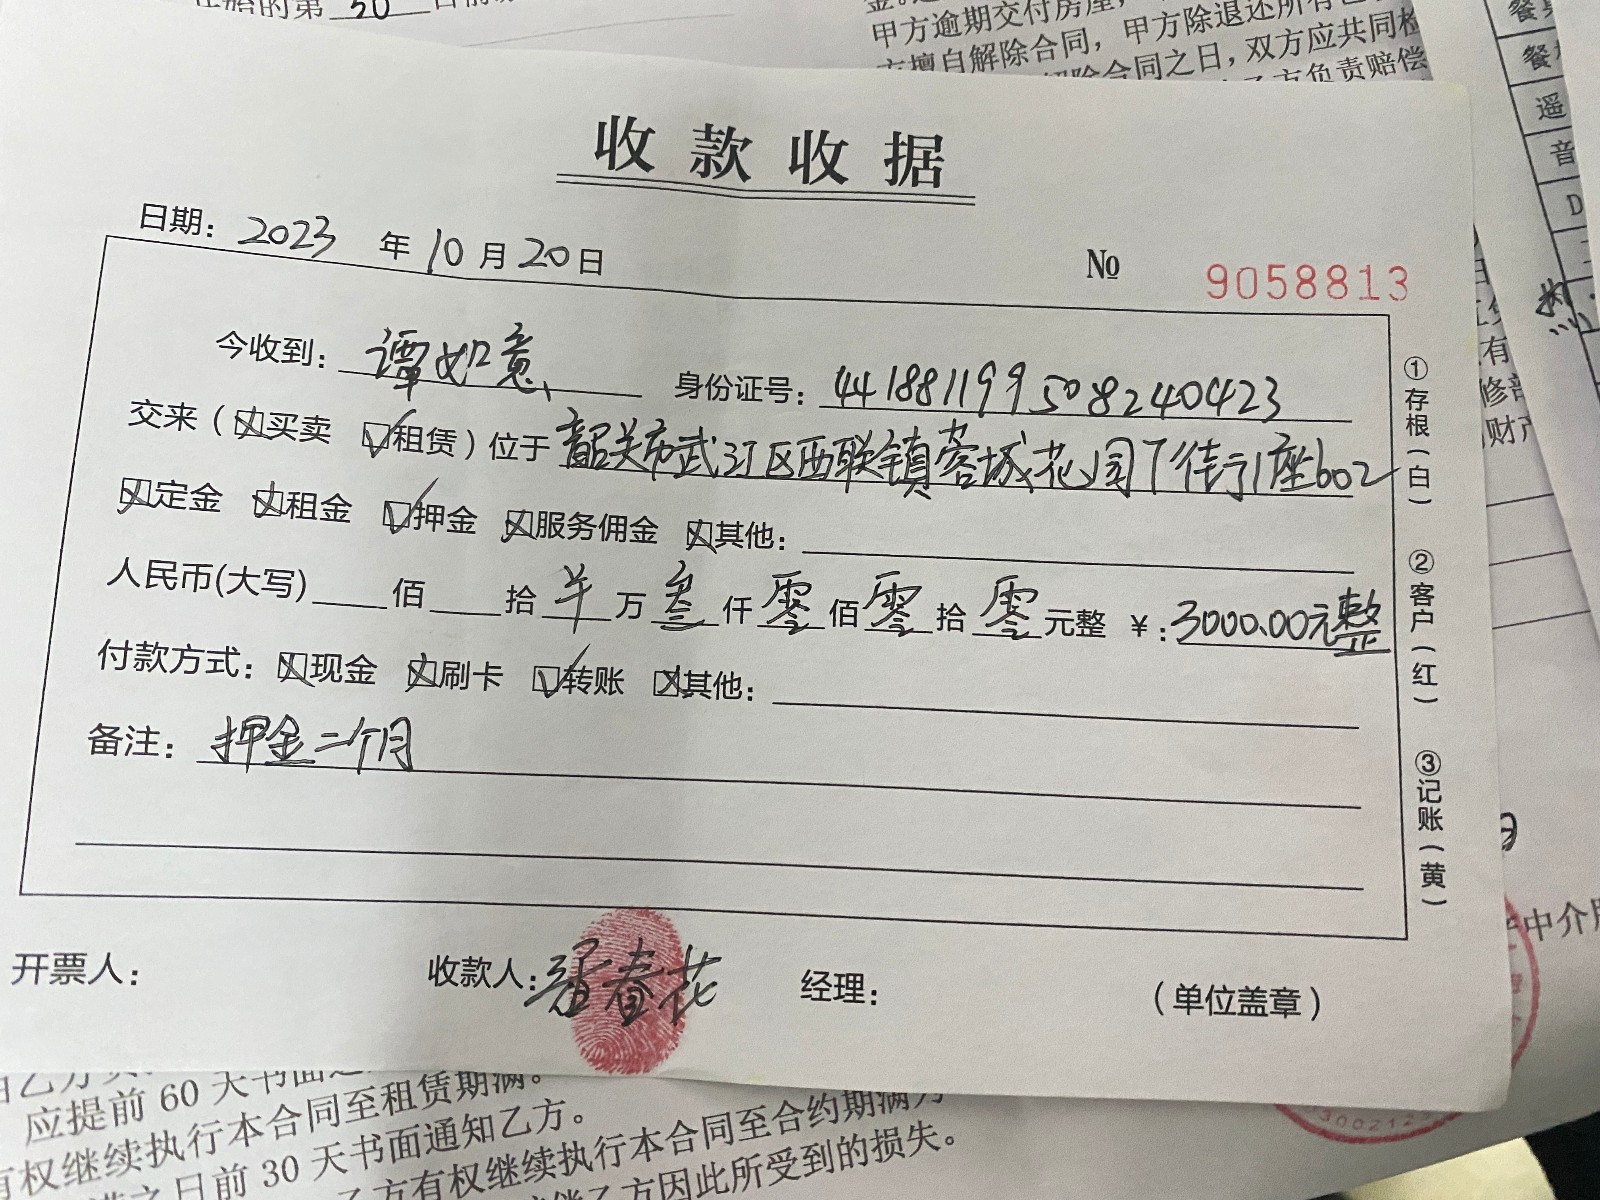 始的第 30
甲方逾期交付房屋，
甲方除退还所有
方擅自解除合同，
解除合同之日，双方应共同检
方负责赔偿
餐
遥
音
收款收据
日期：2023 年 10 月 20 日
№ 9058813
今收到：谭如意 身份证号：441881199508240423
交来（☒买卖 ☑租赁）位于韶关市武江区西联镇蓉城花园丁街1座602
☒定金 ☒租金 ☑押金 ☒服务佣金 ☒其他：
人民币(大写) 佰 拾 羊 万 叁 仟 零 佰 零 拾 零 元整 ￥:3000.00元整
付款方式：☒现金 ☒刷卡 ☑转账 ☒其他：
备注：押金二个月
①存根（白） ②客户（红） ③记账（黄）
开票人： 收款人：春花 经理： （单位盖章）
中介
应提前 60 天书面
有权继续执行本合同至租赁期满。
之日前 30 天书面通知乙方。
乙方有权继续执行本合同至合约期满
乙方因此所受到的损失。